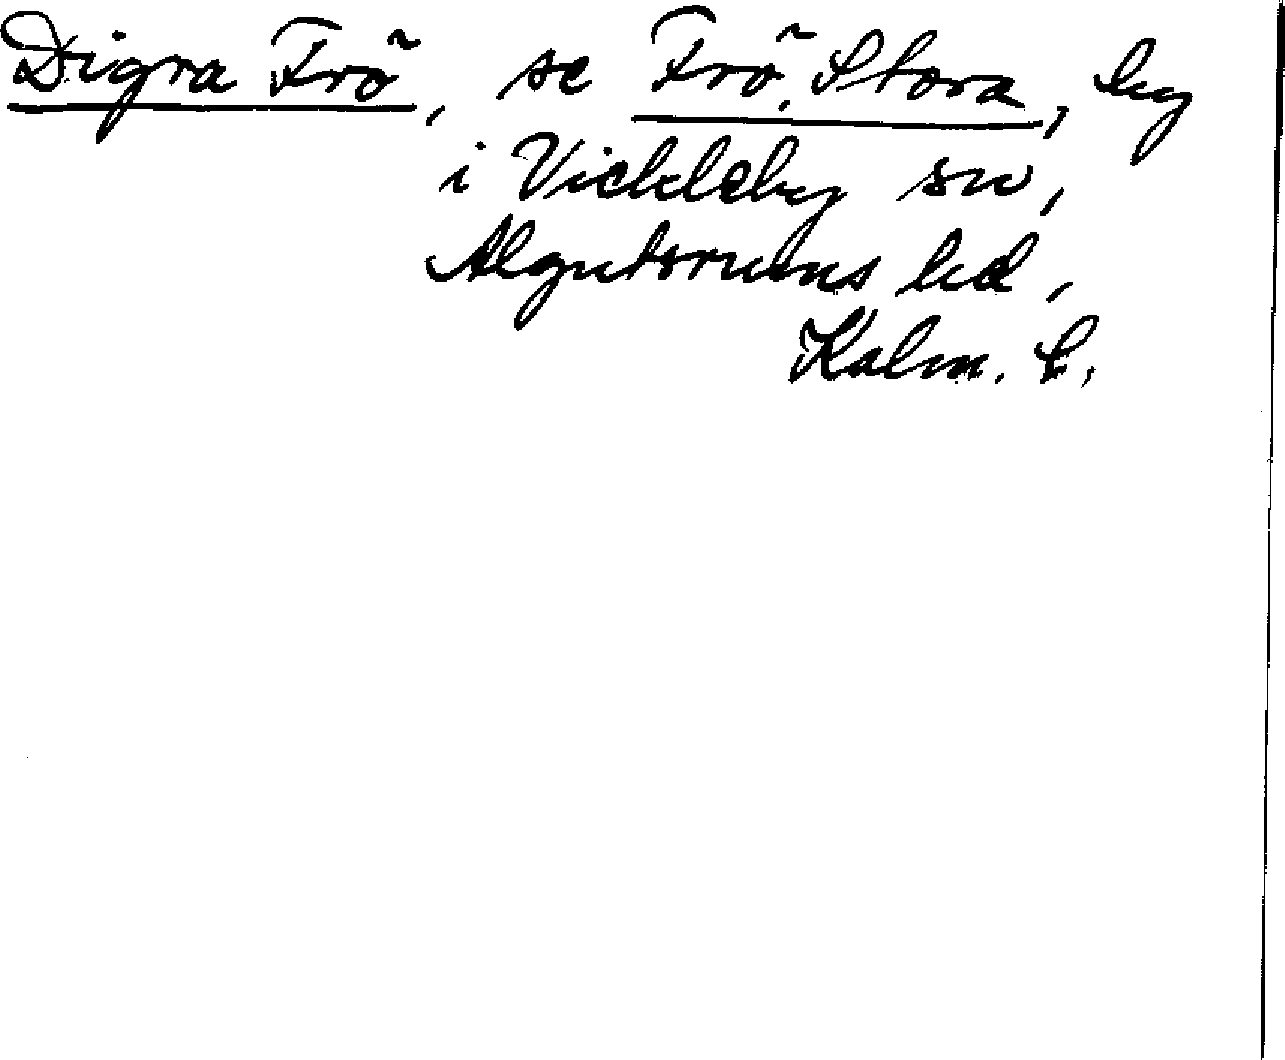 Digra Frö, se Frö, Stora, by
i Vickleby sn,
Algutsrums hd,
Kalm. l.